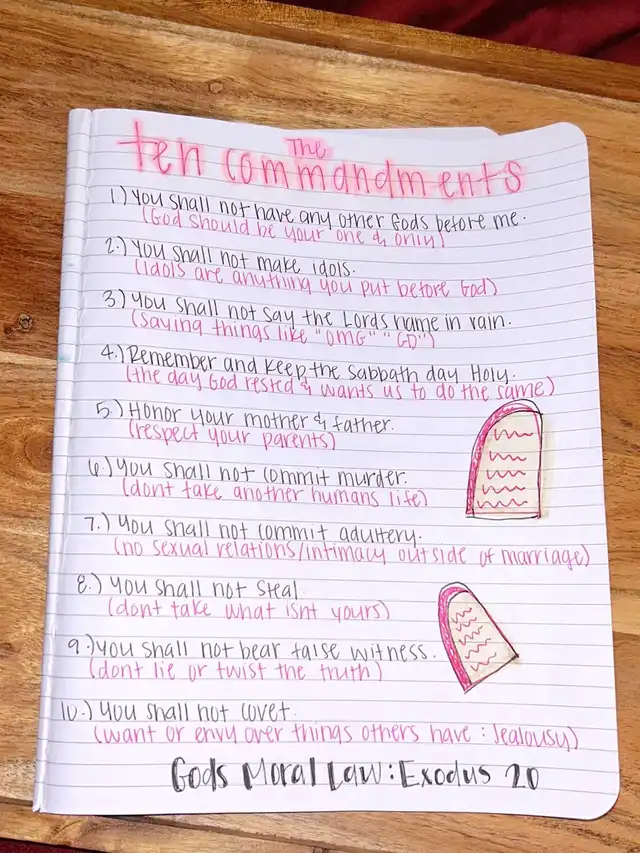 The
ten commandments
1) You shall not have any other Gods before me.
(God should be your one & only)
2.) You shall not make idols.
(idols are anything you put before God)
3.) You shall not say the Lords name in vain.
(saying things like "OMG" "GD")
4.) Remember and keep the Sabbath day Holy.
(the day God rested & wants us to do the same)
5.) Honor your mother & father.
(respect your parents)
6.) You shall not commit murder.
(dont take another humans life)
7.) You shall not commit adultery.
(no sexual relations/intimacy outside of marriage)
8.) You shall not steal.
(dont take what isnt yours)
9.) You shall not bear false witness.
(dont lie or twist the truth)
10.) You shall not covet.
(want or envy over things others have : Jealousy)
Gods Moral Law : Exodus 20